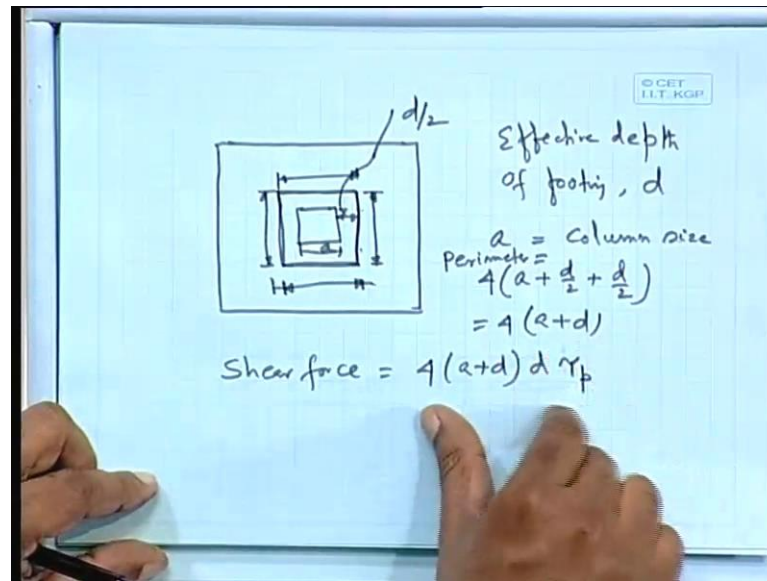 © CET
I.I.T. KGP
d/2
Effective depth
of footing, d
a
a = Column size
Perimeter =
4(a + d/2 + d/2)
= 4(a+d)
Shear force = 4(a+d) d τp